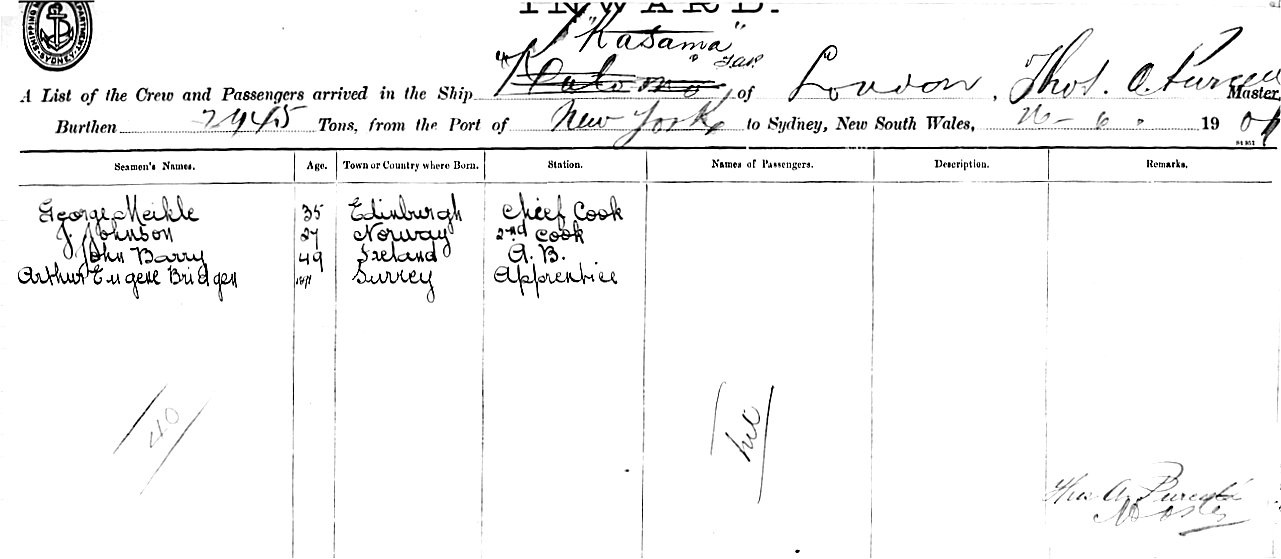 SHIPPING SYDNEY
INWARD.
"Kasama"
A List of the Crew and Passengers arrived in the Ship of London, Thos. A. Master,
Burthen 2945 Tons, from the Port of New York, to Sydney, New South Wales, 6 190
Seamen's Names. Age. Town or Country where Born. Station. Names of Passengers. Description. Remarks.
George Meikle 35 Edinburgh Chief Cook
J. Johnson 27 Norway 2nd Cook
John Barry 49 Ireland A. B.
Arthur Eugene Bridgen Surrey Apprentice
40
nil
Thos A.
Master